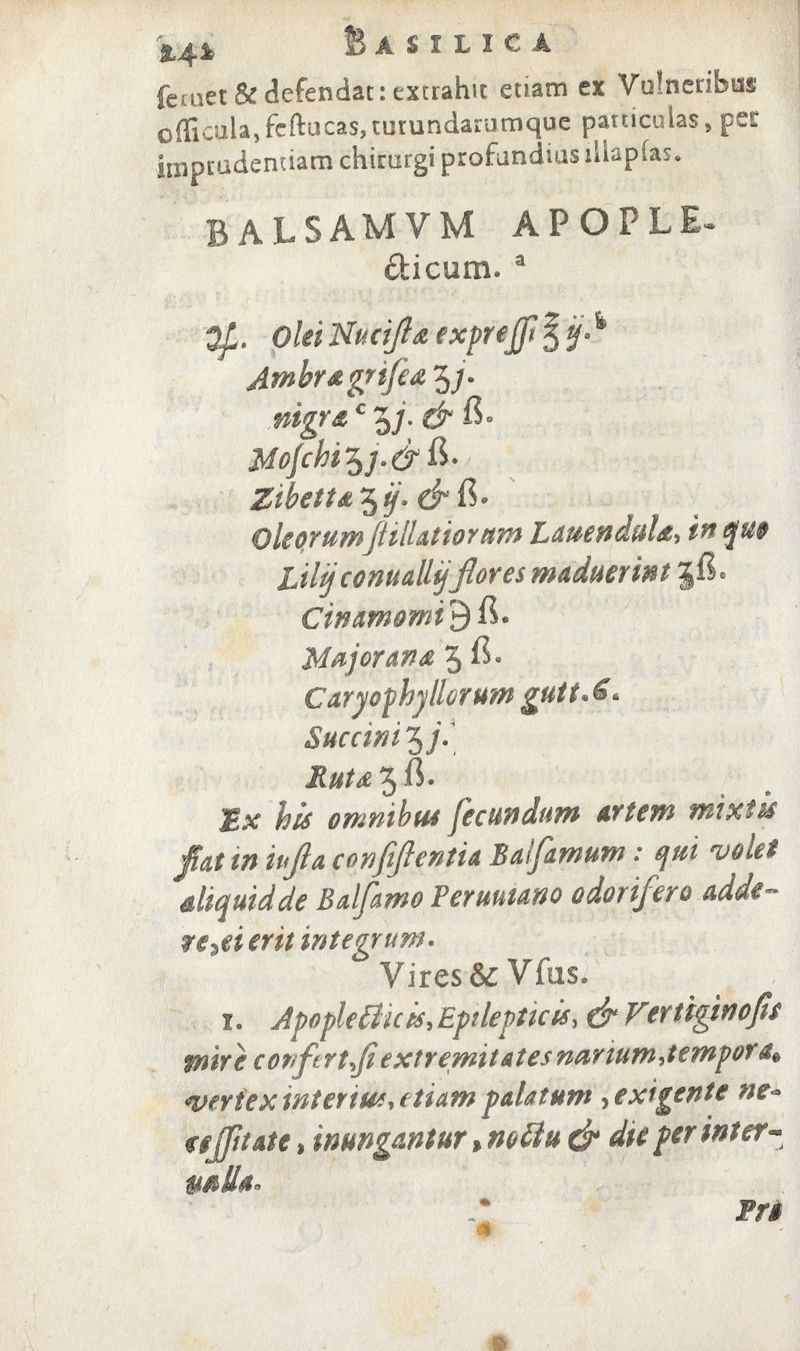 242 BASILICA
ſeruet & defendat: extrahit etiam ex Vulneribus
oſſicula, feſtucas, turundarumque particulas, per
imprudentiam chirurgi profundius illapſas.
BALSAMVM APOPLE-
cticum. a
℞. Olei Nuciſtæ expreſſi ℥ ij. b
Ambræ griſeæ ʒ j.
nigræ c ʒ j. & ß.
Moſchi ʒ j. & ß.
Zibettæ ʒ ij. & ß.
Oleorum ſtillatiorum Lauendulæ, in quo
Lilij conuallij flores maduerint ʒ ß.
Cinamomi ℈ ß.
Majoranæ ʒ ß.
Caryophyllorum gutt. 6.
Succini ʒ j.
Rutæ ʒ ß.
Ex his omnibus ſecundum artem mixtis
fiat in iuſta conſiſtentia Balſamum : qui volet
aliquid de Balſamo Peruuiano odorifero adde-
re, ei erit integrum.
Vires & Vſus.
1. Apoplecticis, Epilepticis, & Vertiginoſis
mirè confert, ſi extremitates narium, tempora,
vertex interius, etiam palatum, exigente ne-
ceſſitate, inungantur, noctu & die per inter-
ualla.
Pro